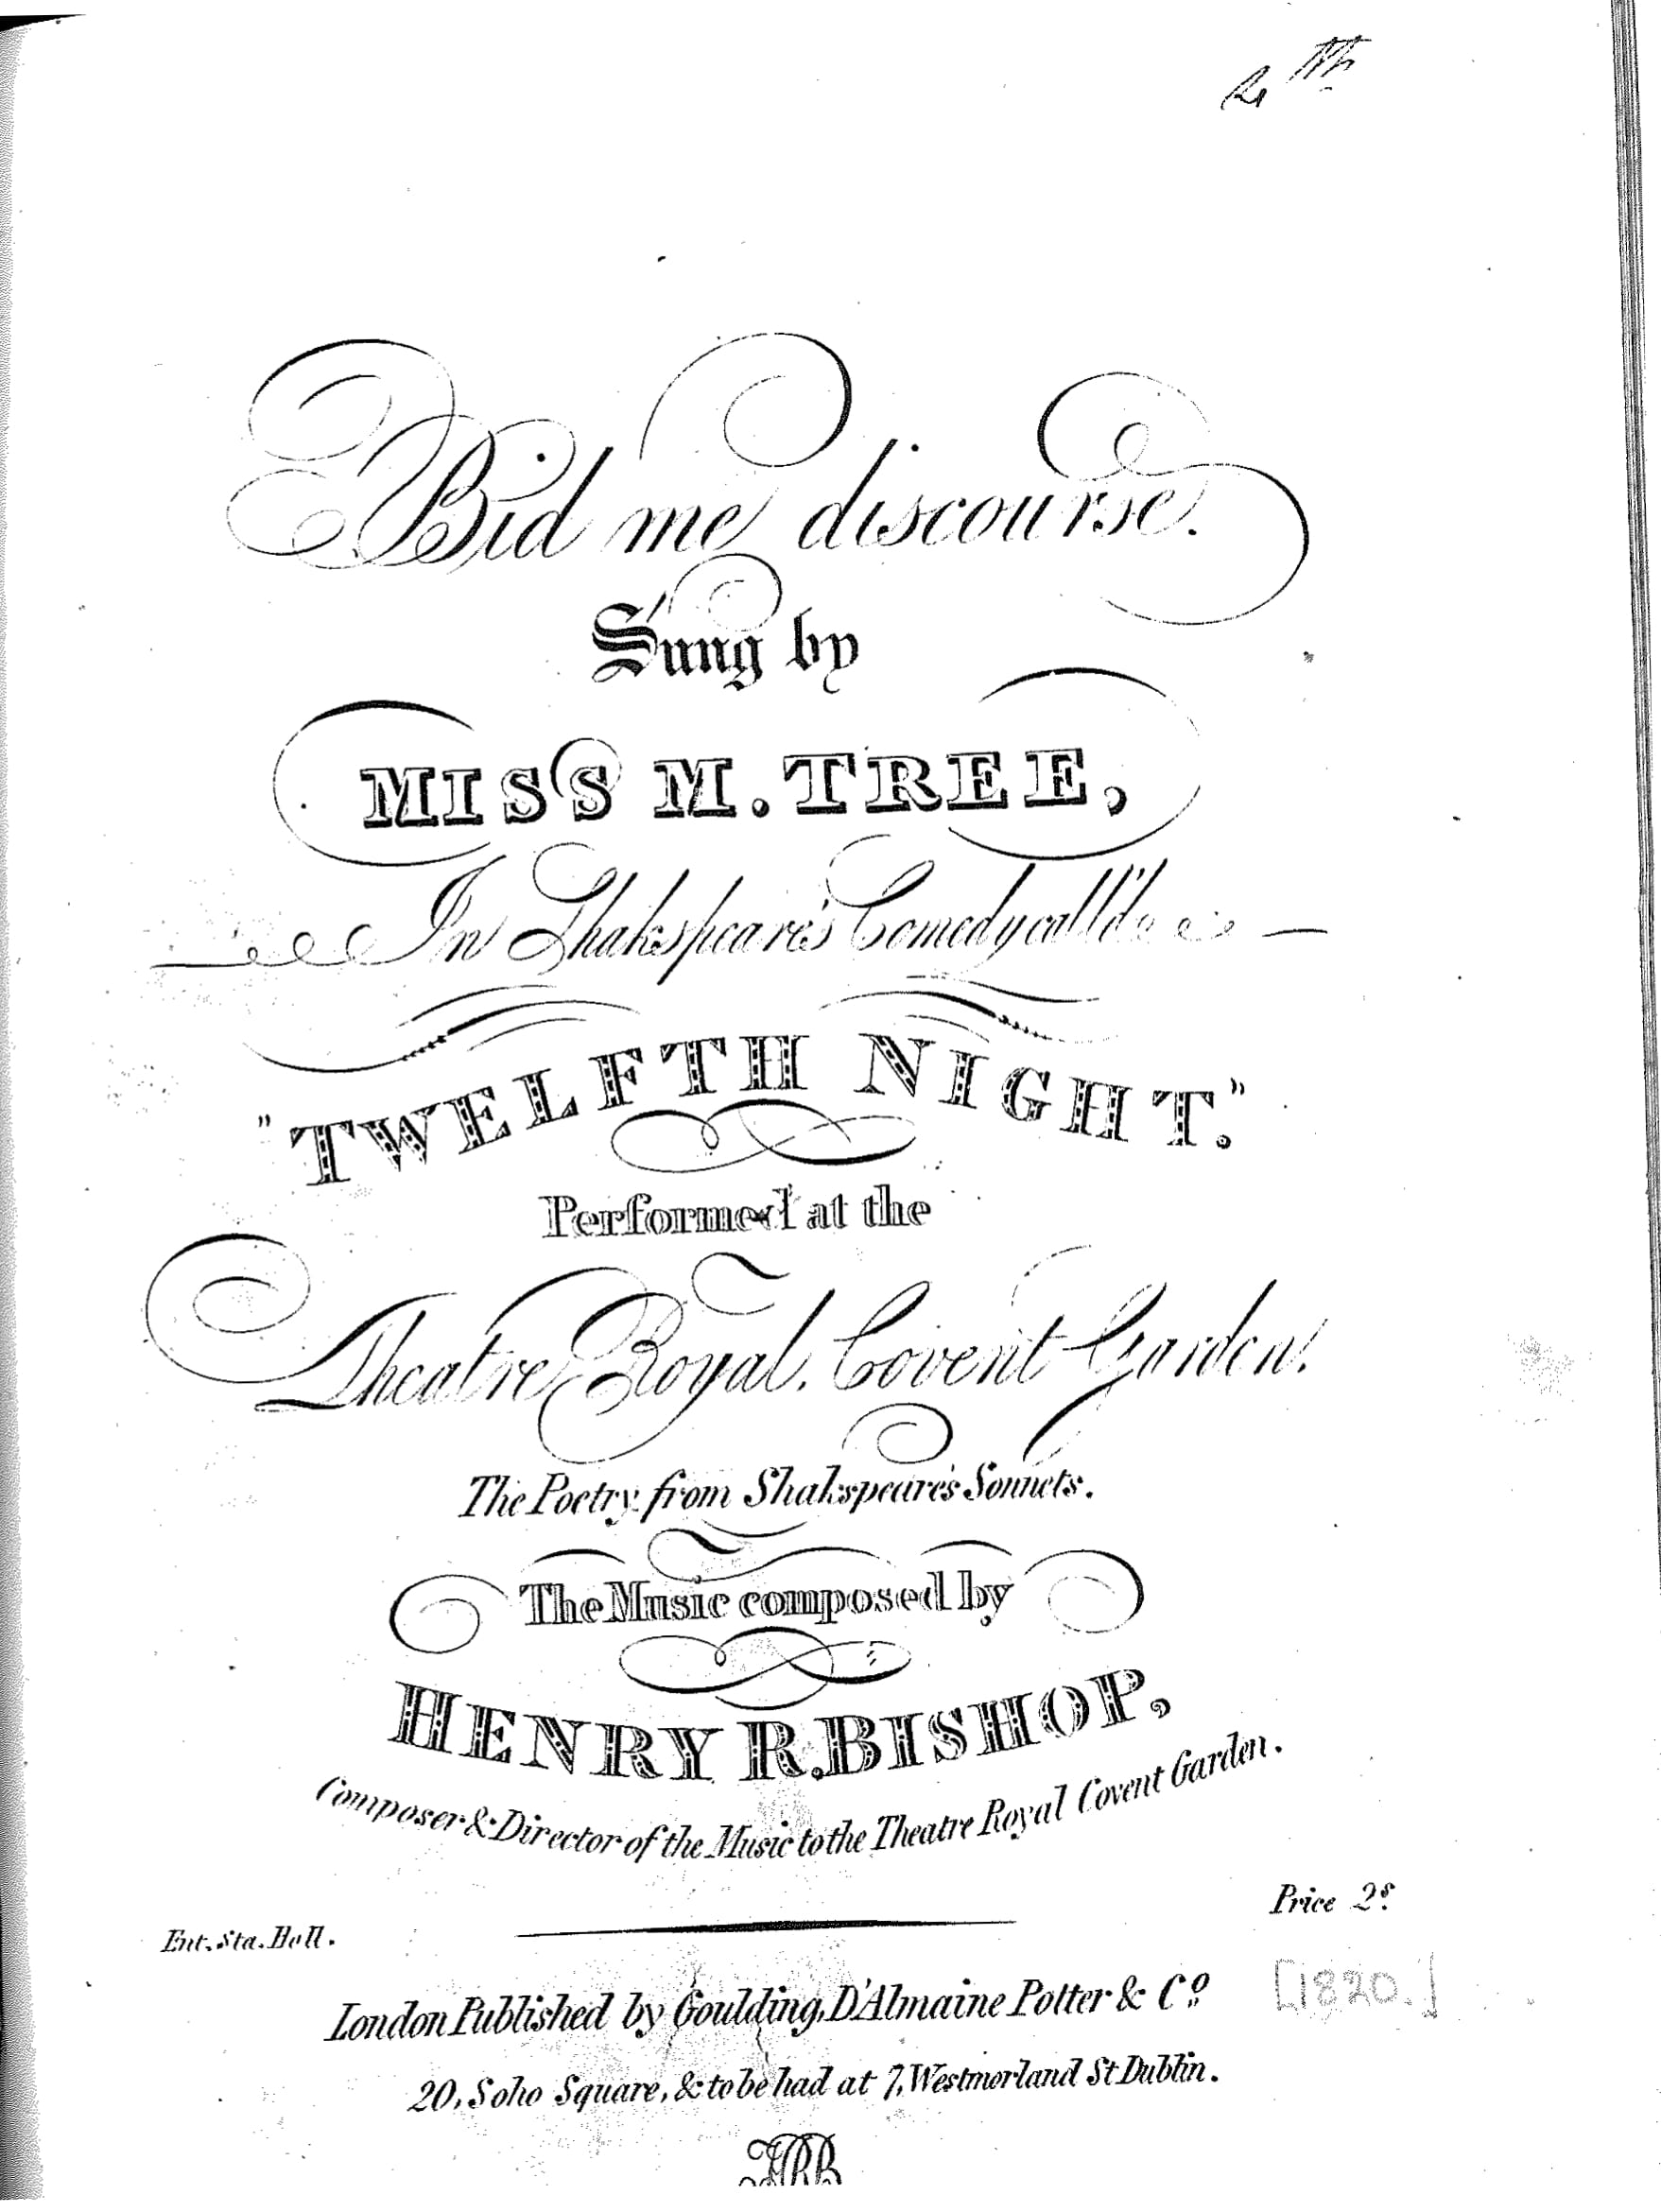 Bid me discourse.
Sung by
MISS M. TREE,
In Shakspeare's Comedy call'd
"TWELFTH NIGHT."
Performed at the
Theatre Royal, Covent Garden.
The Poetry from Shakspeare's Sonnets.
The Music composed by
HENRY R. BISHOP,
Composer & Director of the Music to the Theatre Royal Covent Garden.
Price 2s.
Ent. Sta. Hall.
London Published by Goulding, D'Almaine Potter & Co.
[1820.]
20, Soho Square, & to be had at 7, Westmorland St Dublin.